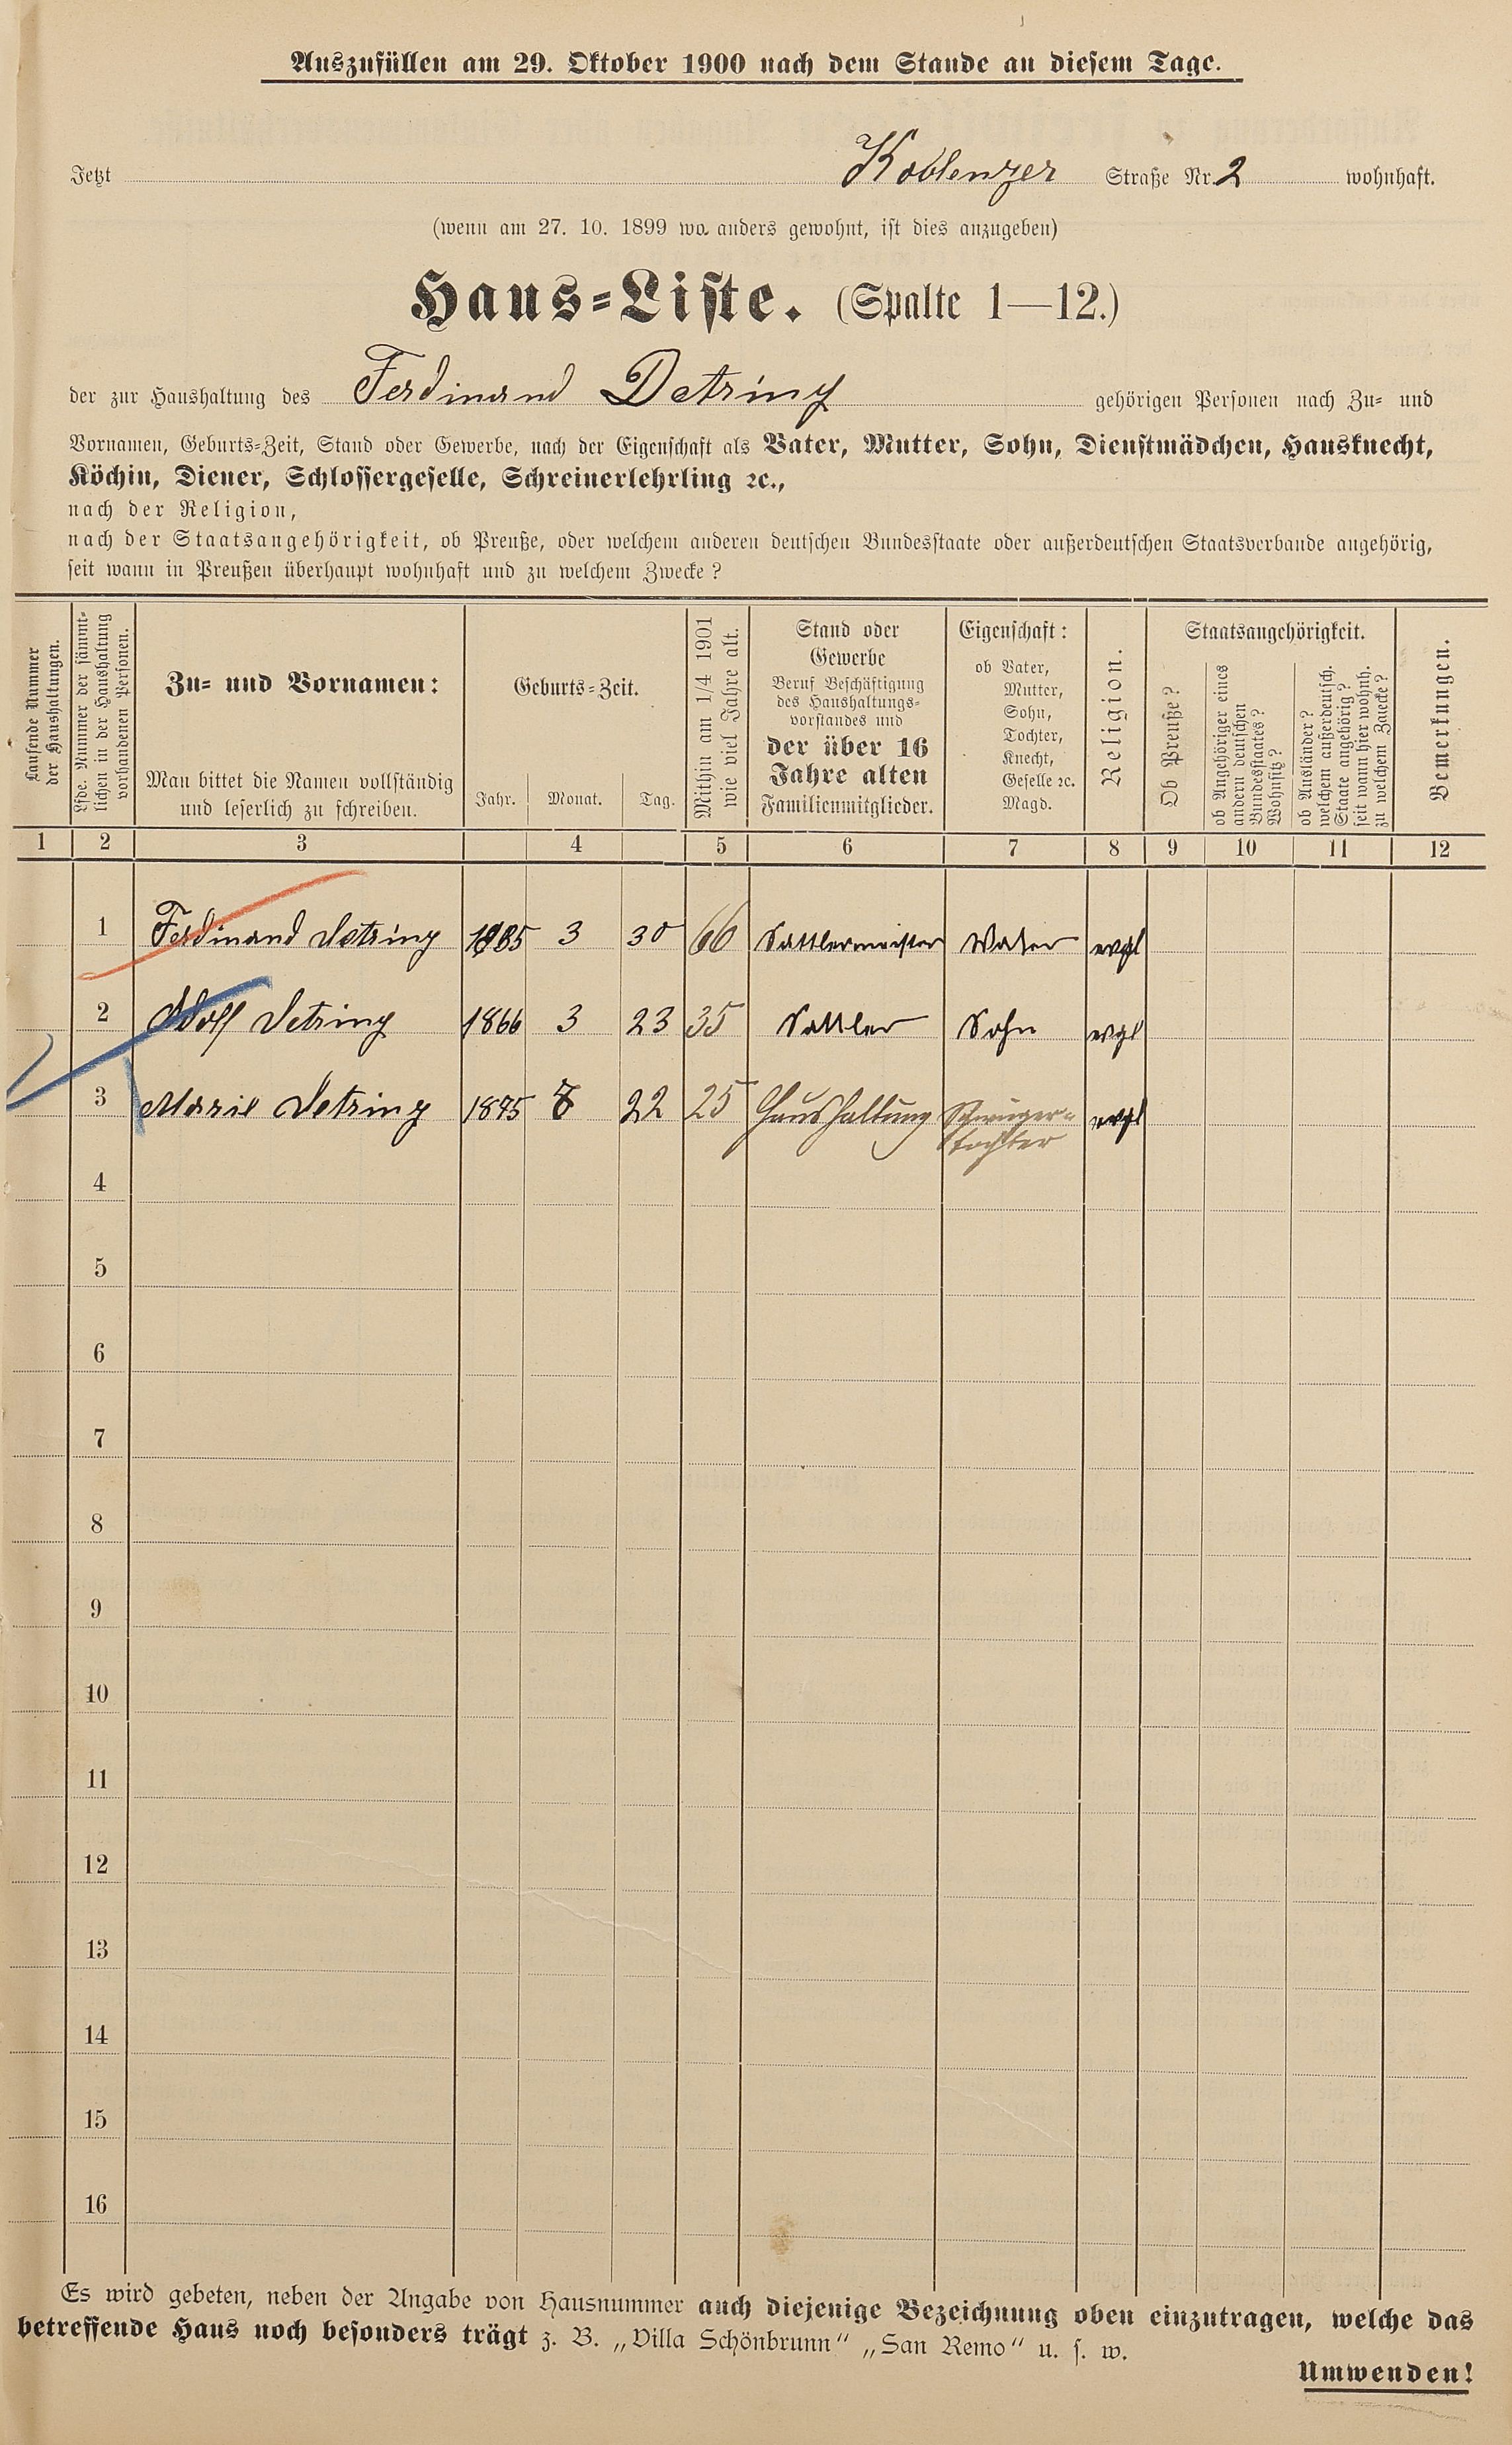 Auszufüllen am 29. Oktober 1900 nach dem Stande an diesem Tage.
Jetzt Koblenzer Straße Nr. 2 wohnhaft.
(wenn am 27. 10. 1899 wo anders gewohnt, ist dies anzugeben)
Haus-Liste. (Spalte 1—12.)
der zur Haushaltung des Ferdinand Detring gehörigen Personen nach Zu- und
Vornamen, Geburts-Zeit, Stand oder Gewerbe, nach der Eigenschaft als Vater, Mutter, Sohn, Dienstmädchen, Hausknecht,
Köchin, Diener, Schlossergeselle, Schreinerlehrling ꝛc.,
nach der Religion,
nach der Staatsangehörigkeit, ob Preuße, oder welchem anderen deutschen Bundesstaate oder außerdeutschen Staatsverbande angehörig,
seit wann in Preußen überhaupt wohnhaft und zu welchem Zwecke?
Laufende Nummer
der Haushaltungen.
Lfde. Nummer der sämmt-
lichen in der Haushaltung
vorhandenen Personen.
Zu- und Vornamen:
Man bittet die Namen vollständig
und leserlich zu schreiben.
Geburts-Zeit.
Jahr. Monat. Tag.
Mithin am 1/4 1901
wie viel Jahre alt.
Stand oder
Gewerbe
Beruf Beschäftigung
des Haushaltungs-
vorstandes und
der über 16
Jahre alten
Familienmitglieder.
Eigenschaft:
ob Vater,
Mutter,
Sohn,
Tochter,
Knecht,
Geselle ꝛc.
Magd.
Religion.
Staatsangehörigkeit.
Ob Preuße?
ob Angehöriger eines
andern deutschen
Bundesstaates?
Wohnsitz?
ob Ausländer?
welchem außerdeutsch.
Staate angehörig?
seit wann hier wohnh.
zu welchem Zwecke?
Bemerkungen.
1 2 3 4 5 6 7 8 9 10 11 12
1 Ferdinand Detring 1835 3 30 66 Sattlermeister Vater evgl
2 Adolf Detring 1866 3 23 35 Sattler Sohn evgl
3 Marie Detring 1875 8 22 25 Haushaltung Schwieger-
tochter evgl
4
5
6
7
8
9
10
11
12
13
14
15
16
Es wird gebeten, neben der Angabe von Hausnummer auch diejenige Bezeichnung oben einzutragen, welche das
betreffende Haus noch besonders trägt z. B. „Villa Schönbrunn“ „San Remo“ u. s. w.
Umwenden!